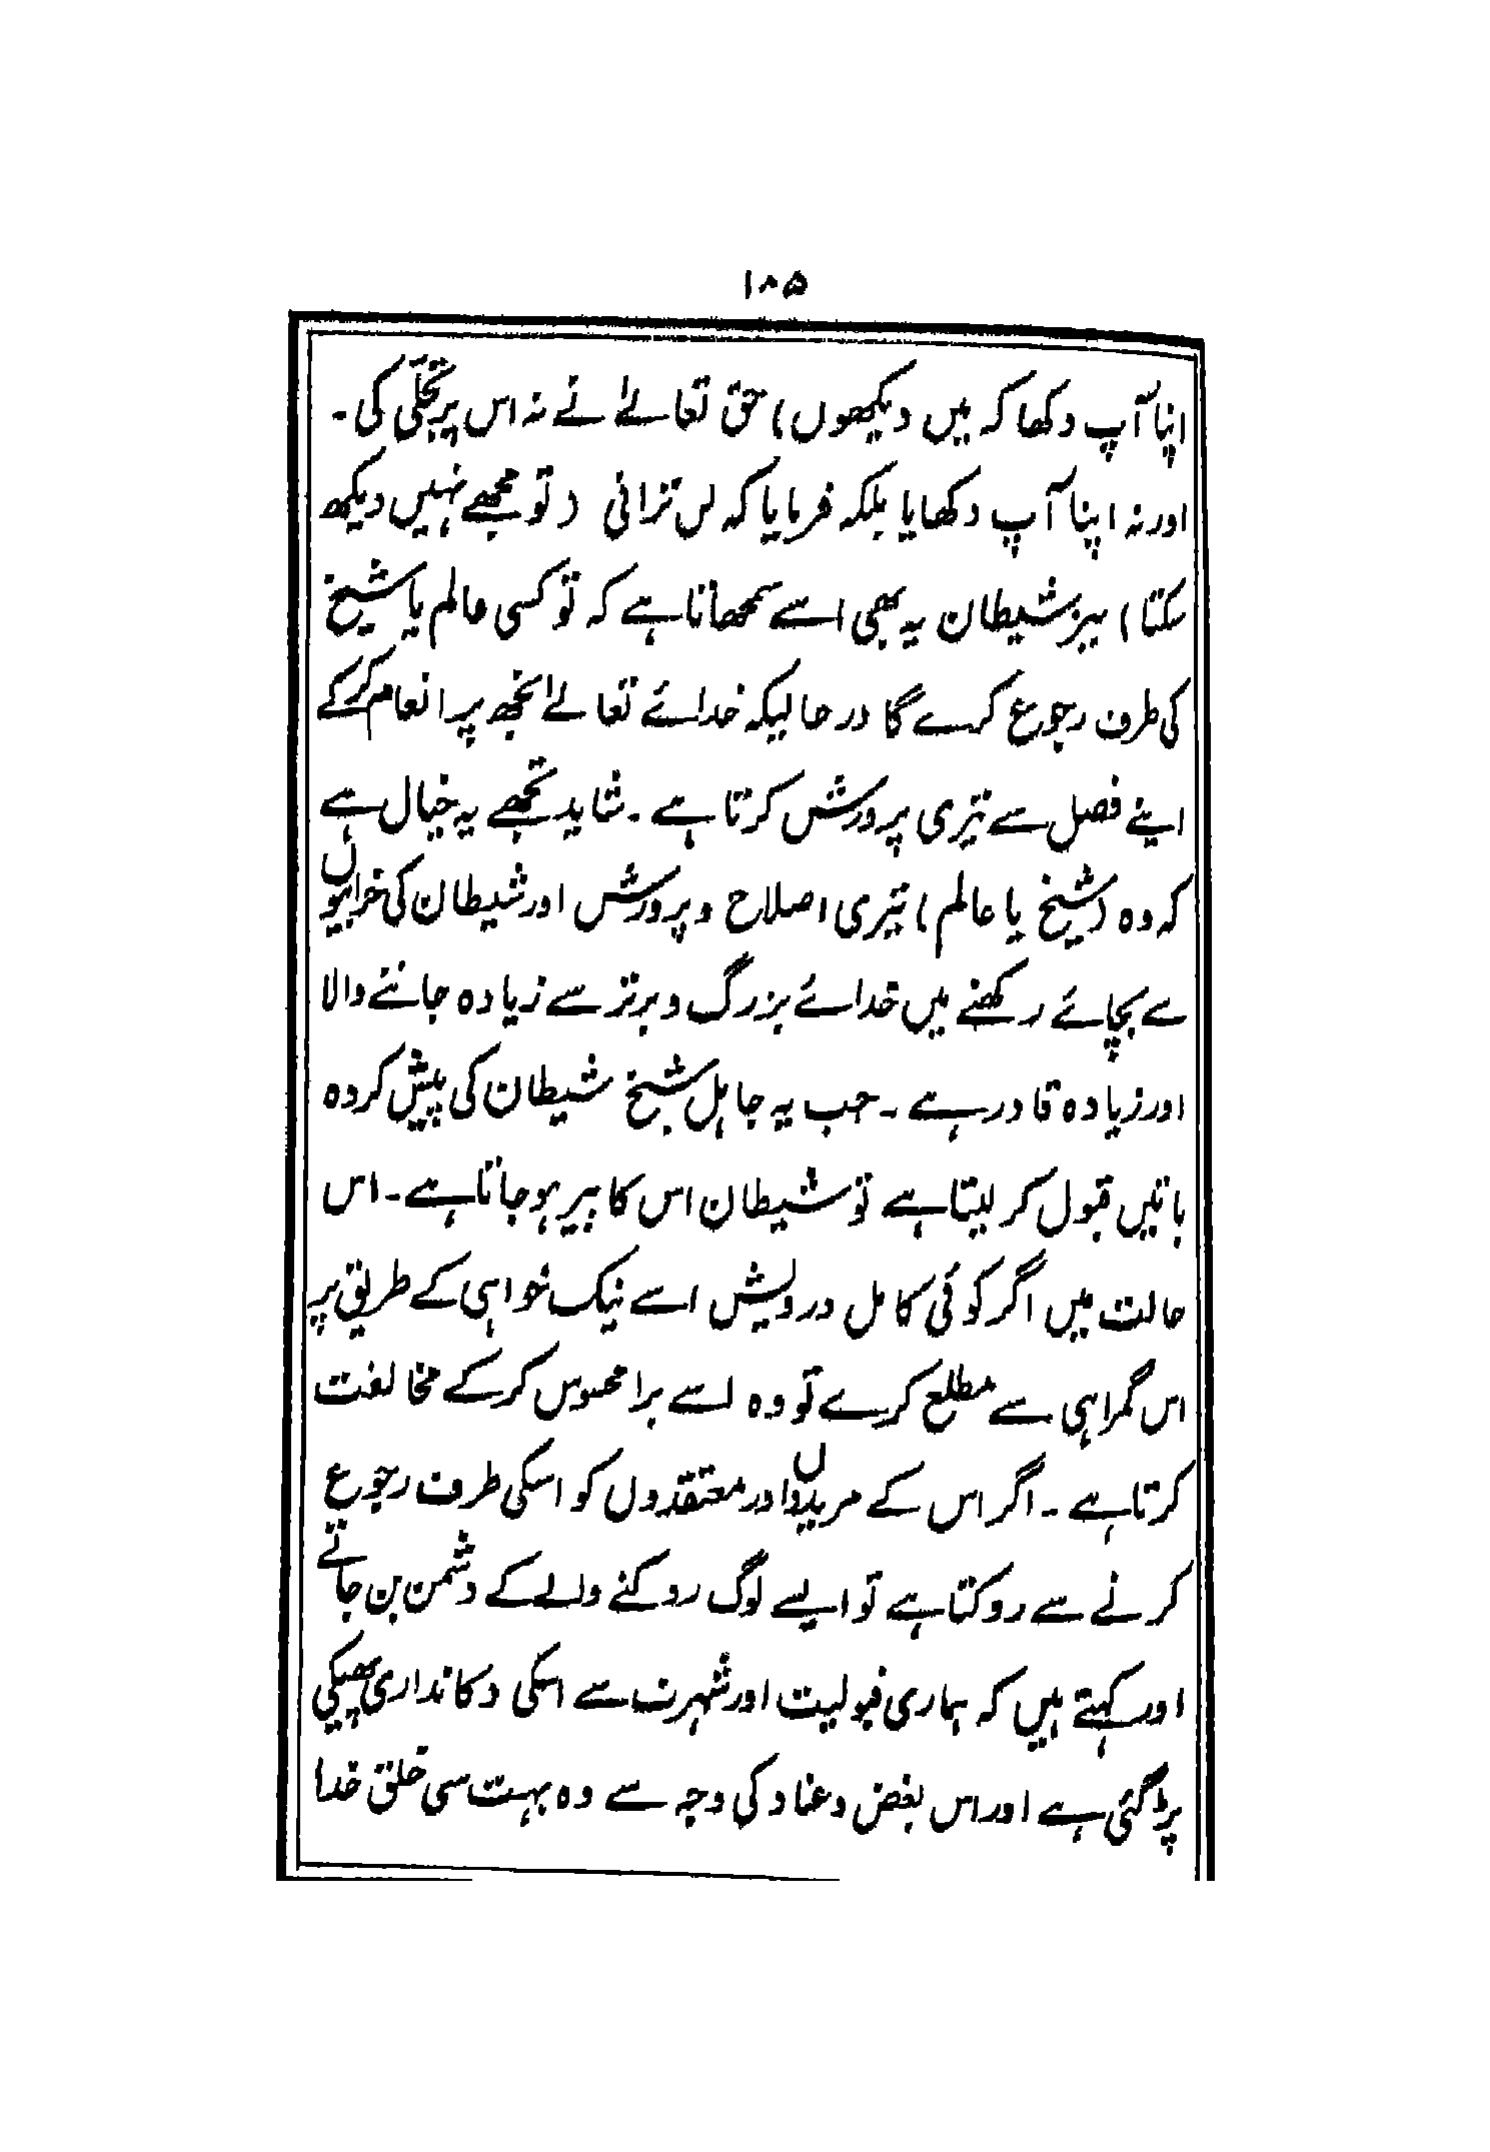 ۱۸۵
اپنا آپ دکھا کہ میں دیکھوں) حق تعالےٰ نے نہ اس پر تجلّی کی۔
اور نہ اپنا آپ دکھایا بلکہ فرمایا کہ لن ترانی (تو مجھے نہیں دیکھ
سکتا) نیز شیطان یہ بھی اسے سمجھاتا ہے کہ تو کسی عالم یا شیخ
کی طرف رجوع کرے گا درحالیکہ خدائے تعالےٰ تجھ پر انعام کرکے
اپنے فضل سے تیری پرورش کرتا ہے۔ شاید تجھے یہ خیال ہے
کہ وہ (شیخ یا عالم) تیری اصلاح و پرورش اور شیطان کی خرابیوں
سے بچائے رکھنے میں خدائے بزرگ و برتر سے زیادہ جاننے والا
اور زیادہ قادر ہے۔ جب یہ جاہل شیخ شیطان کی پیش کردہ
باتیں قبول کر لیتا ہے تو شیطان اس کا پیر ہو جاتا ہے۔ اس
حالت میں اگر کوئی کامل درویش اسے نیک خواہی کے طریق پر
اس گمراہی سے مطلع کرے تو وہ اسے برا محسوس کرکے مخالفت
کرتا ہے۔ اگر اس کے مریدوں اور معتقدوں کو اسکی طرف رجوع
کرنے سے روکتا ہے تو ایسے لوگ روکنے والے کے دشمن بن جاتے
اور کہتے ہیں کہ ہماری قبولیت اور شہرت سے اسکی دکانداری پھیکی
پڑ گئی ہے اور اس بغض و عناد کی وجہ سے وہ بہت سی خلق خدا